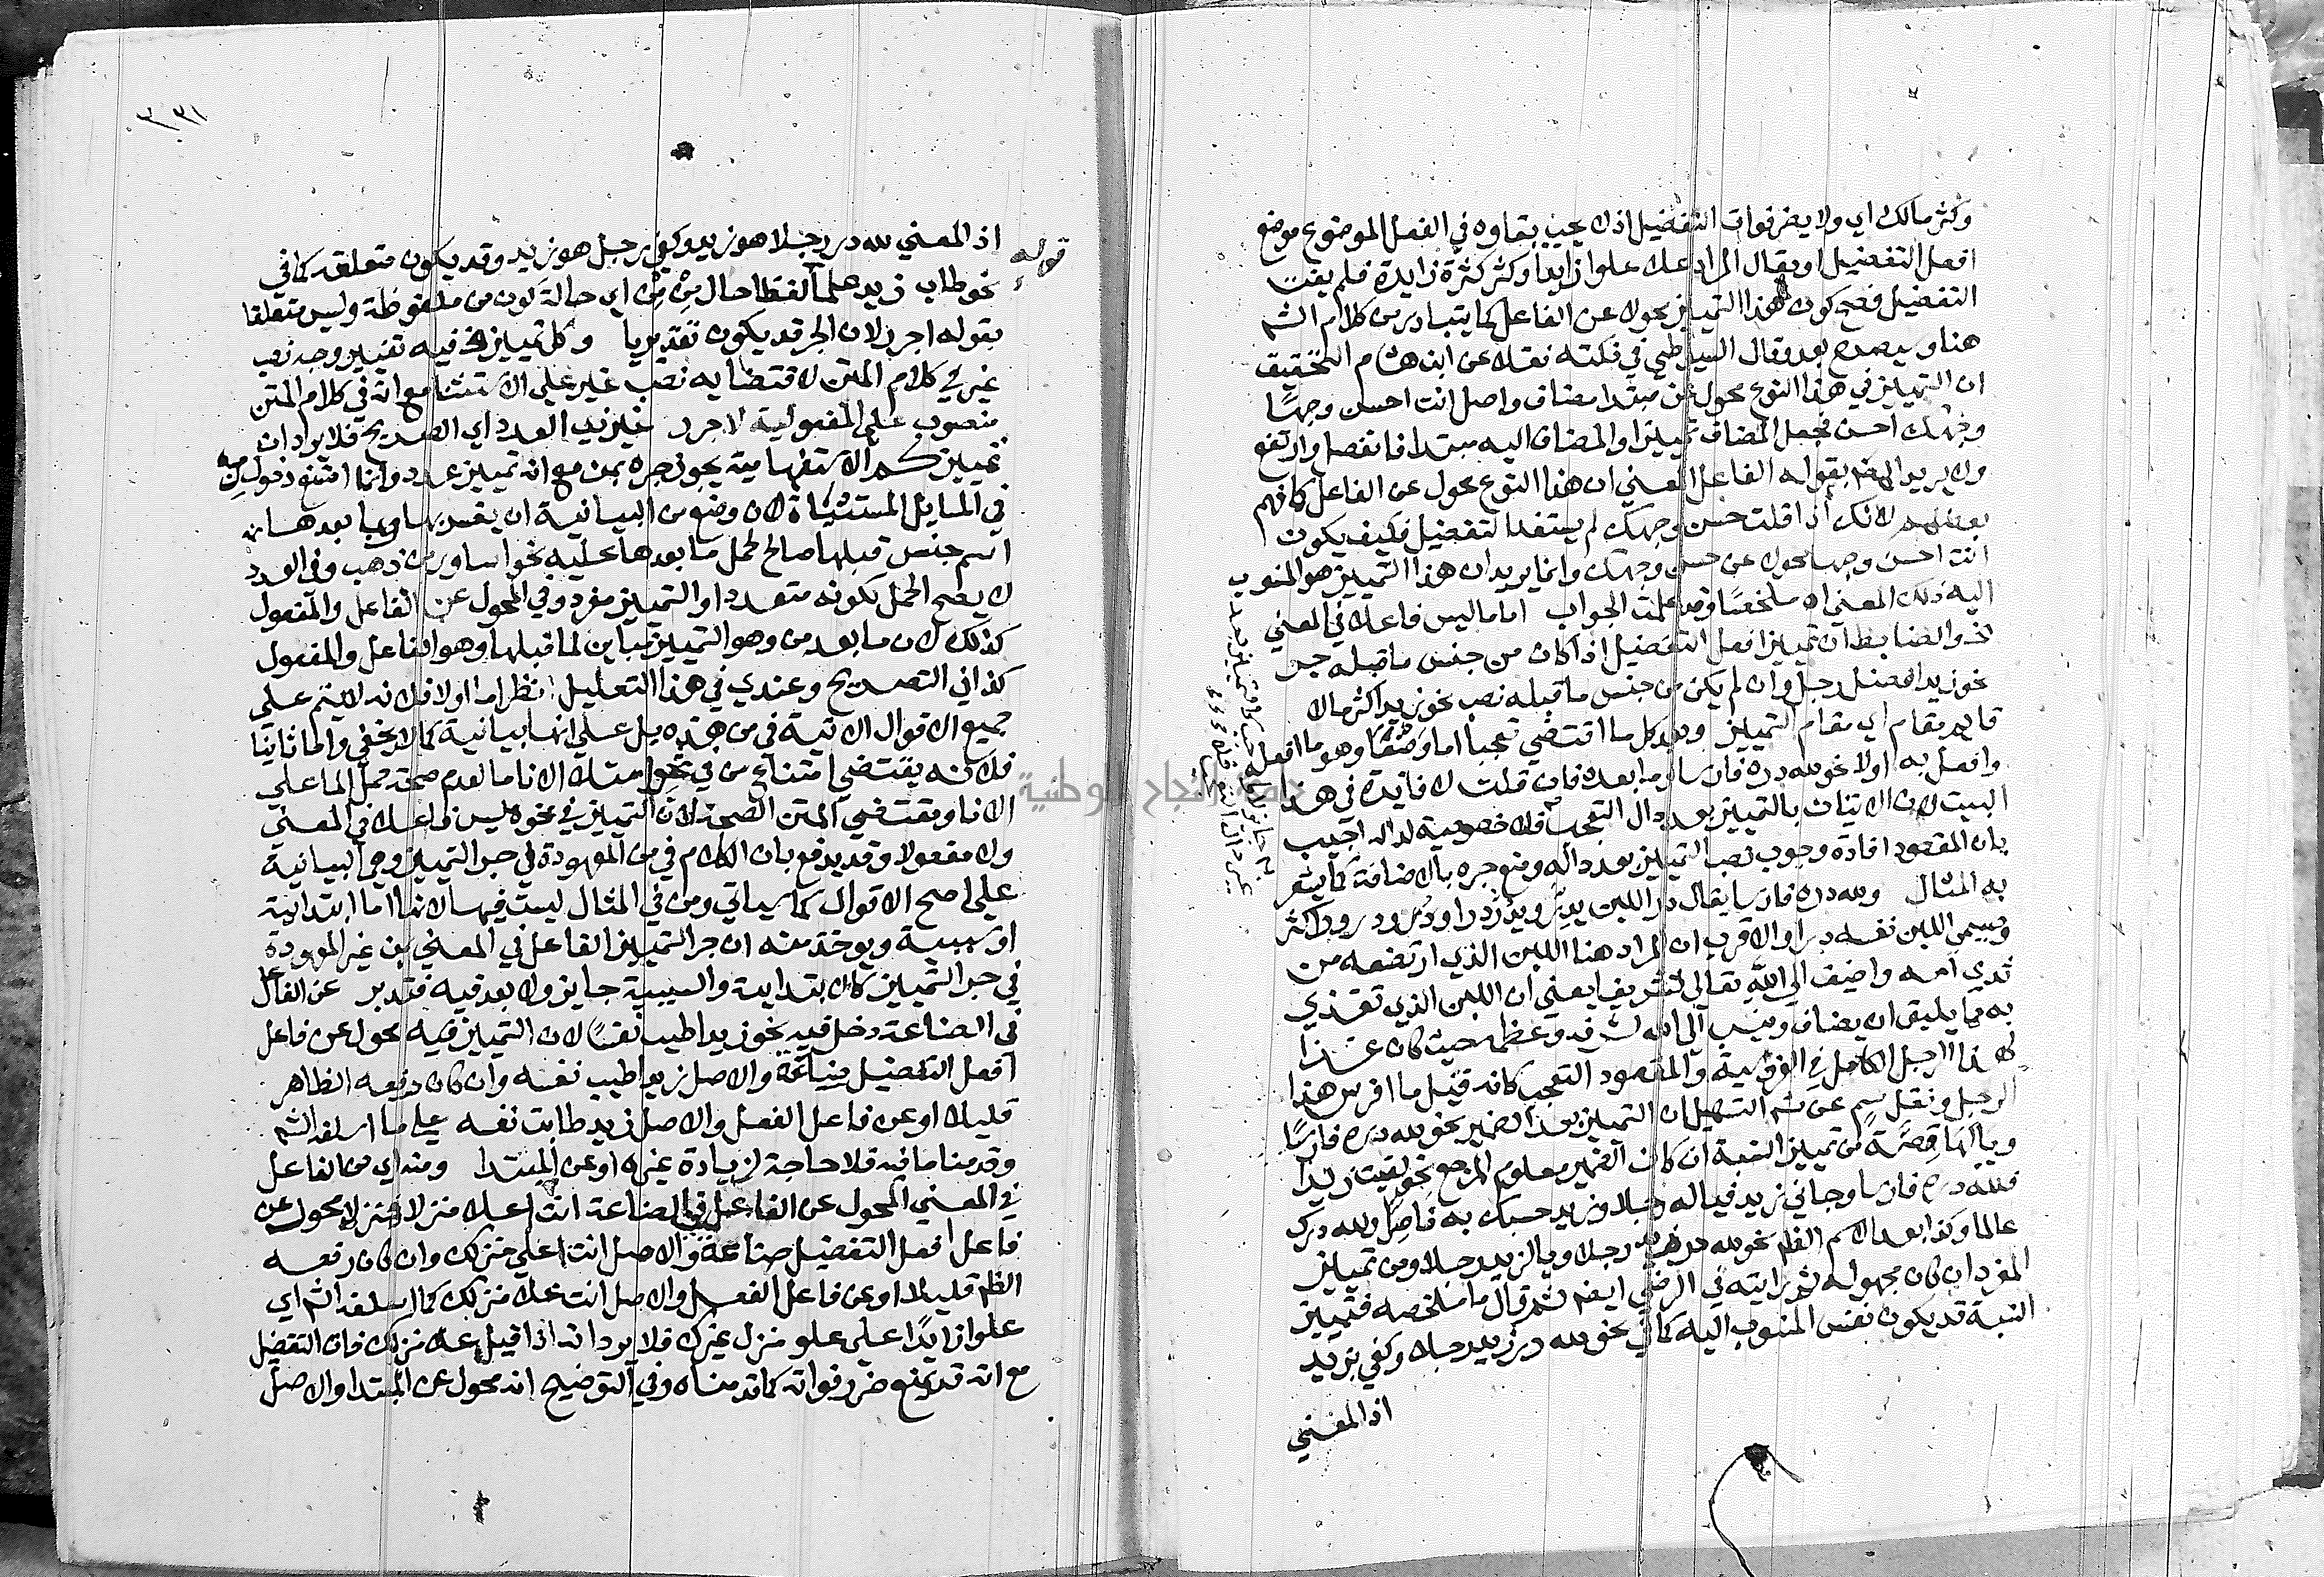 وكثر مالك اي ولا يضر فوات التفضيل اذ لا يجب بقاوه في الفعل الموضوع موضع
افعل التفضيل او يقال المراد علا علوا زايدا وكثر كثرة زايدة فلم يفت
التفضيل فصح كون هذا التمييز محولا عن الفاعل كما يتبادر من كلام الشم
هنا وبعد وقال السيوطي في نكته نقلا عن ابن هشام التحقيق
ان التمييز في هذا النوع محول عن مبتدا مضاف واصل انت احسن وجها
وجهك احسن فجعل المضاف تمييزا والمضاف اليه مبتدا فانفصل وارتفع
ولا يريد المص بقوله الفاعل المعني ان هذا النوع محول عن الفاعل كما فهم
بعضهم لانك اذا قلت حسن وجهك لم يستفد التفضيل فكيف يكون
انت احسن وجها محولا عن حسن وجهك وانما يريد ان هذا التمييز هو المنسوب
اليه ذلك المعني اه ملخصا وقد علمت الجواب اما ما ليس فاعلا في المعني
الخ والضابط ان تمييز افعل التفضيل اذا كان من جنس ما قبله جر
نحو زيد افضل رجل وان لم يكن من جنس ما قبله نصب نحو زيد اكثر مالا
قايم مقام اي مقام التمييز وبعد كل ما اقتضي تعجبا اما وضعا وهو ما افعله
وافعل به اولا نحو لله دره فارسا وما بعده فان قلت لا فايدة في هذا
البيت لان الاتيان بالتمييز بعد دال التعجب فلا خصوصية لداله اجيب
بان المقصود افادة وجوب نصب التمييز بعد داله ومنع جره بالاضافة كما يشعر
به المثال ولله دره فارسا يقال در اللبن يدر ويدر درا ودرورا كثر
ويسمي اللبن نفسه درا والاقرب ان المراد هنا اللبن الذي ارتضعه من
ثدي امه واضيف الي الله تعالي تشريفا يعني ان اللبن الذي تغذي
به مما يليق ان يضاف وينسب الي الله لشرفه وعظمه حيث كان غذا
لهذا الرجل الكامل في الفروسية والمقصود التعجب كانه قيل ما افرس هذا
الرجل ونقل سم عن شم التسهيل ان التمييز بعد الضمير نحو لله دره فارسا
ويا لها قصة من تمييز النسبة ان كان الضمير معلوم المرجع نحو لقيت زيدا
فلله دره فارسا وجاني زيد فيا له رجلا وزيد حسبك به ناصرا ولله درك
عالما وكذا بعد الاسم الظم نحو لله در زيد رجلا ويا لزيد رجلا ومن تمييز
المفرد ان كان مجهوله ثم رايته في الرضي ايضم ثم قال ما ملخصه فتمييز
النسبة قد يكون نفس المنسوب اليه كما في نحو لله در زيد رجلا وكفي بزيد
اذ المعني
٣٣١
قوله
اذ المعني لله در رجل هو زيد وكفي رجل هو زيد وقد يكون متعلقه كما في
نحو طاب زيد علما لفظا حال من من اي حالة كون من ملفوظة وليس متعلقا
بقوله اجرر لان الجر قد يكون تقديريا وكل تمييز الخ فيه تغيير وجه نصب
غير في كلام المتن لاقتضايه نصب غير علي الاستثنا مع انه في كلام المتن
منصوب علي المفعولية لاجرر غير ذي العدد اي الصريح فلا يرد ان
تمييز كم الاستفهامية يجوز جره بمن مع انه تمييز عدد وانما امتنع دخول من
في المسايل المستثناة لان وضع من البيانية ان يفسر بها وبما بعدها
اسم جنس قبلها صالح لحمل ما بعدها عليه نحو اساور من ذهب وفي العدد
لا يصح الحمل لكونه متعددا والتمييز مفرد وفي المحول عن الفاعل والمفعول
كذلك لان ما بعد من وهو التمييز مباين لما قبلها وهو الفاعل والمفعول
كذا في التصريح وعندي في هذا التعليل نظر اما اولا فلانه لا يتم علي
جميع الاقوال الاتية في من هذه بل علي انها بيانية كما لا يخفي واما ثانيا
فلانه يقتضي امتناع من في نحو امتلا الانا ما لعدم صحة حمل الما علي
الانا ومقتضي المتن الصحة لان التمييز في نحوه ليس فاعلا في المعني
ولا مفعولا وقد يدفع بان الكلام في من المعهودة في جر التمييز وهي البيانية
علي اصح الاقوال كما سياتي ومن في المثال ليست فيها لانها اما ابتدايية
او سببية ويوخذ منه ان جر التمييز الفاعل في المعني بمن غير المعهودة
في جر التمييز كالابتدايية والسببية جايز ولا بعد فيه فتدبر عن الفاعل
في الصناعة دخل فيه نحو زيد اطيب نفسا لان التمييز فيه محول عن فاعل
افعل التفضيل صناعة والاصل زيد اطيب نفسه وان كان رفعه الظاهر
قليلا او عن فاعل الفعل والاصل زيد طابت نفسه علي ما اسلفه الشم
وقدمنا ما فيه فلا حاجة لزيادة غيره او عن المبتدا ومنه اي من الفاعل
في المعني المحول عن الفاعل في الصناعة انت اعلا منزلا فمنزلا محول عن
فاعل افعل التفضيل صناعة والاصل انت اعلي منزلك وان كان رفعه
الظم قليلا او عن فاعل الفعل والاصل انت علا منزلك كما اسلفه الشم اي
علوا زايدا علي علو منزل غيرك فلا يرد انه اذا قيل علا منزلك فات التفضيل
مع انه قد يمنع ضرر فواته كما قدمناه وفي التوضيح انه محول عن المبتدا والاصل